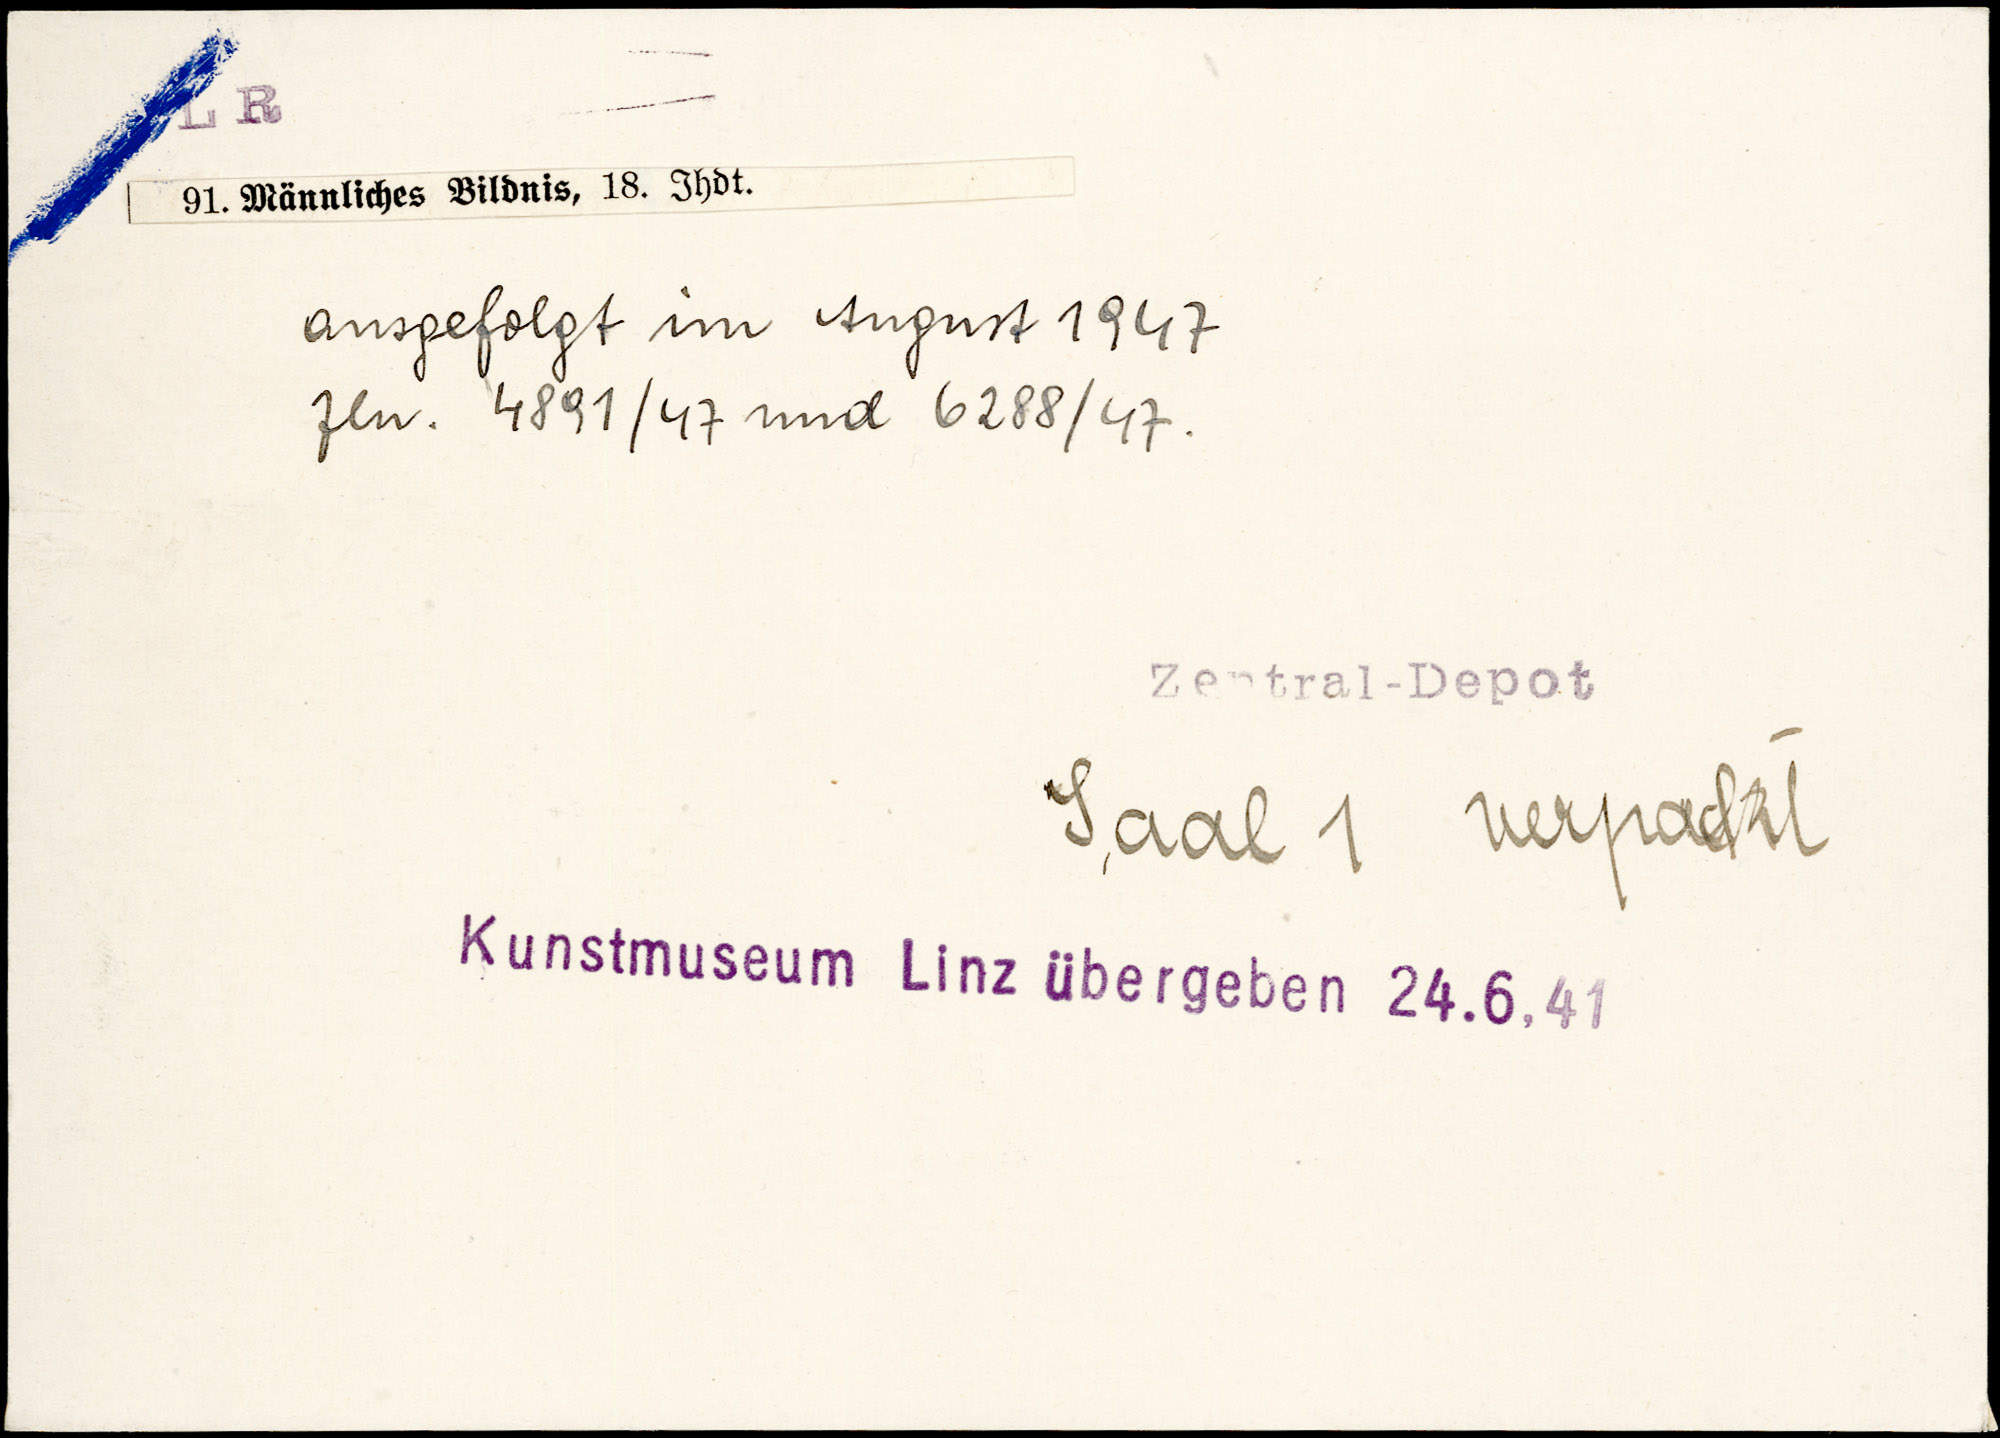 LR
91. Männliches Bildnis, 18. Jhdt.
ausgefolgt im August 1947
Zln. 4891/47 und 6288/47.
Zentral-Depot
Saal 1 verpackt
Kunstmuseum Linz übergeben 24.6.41